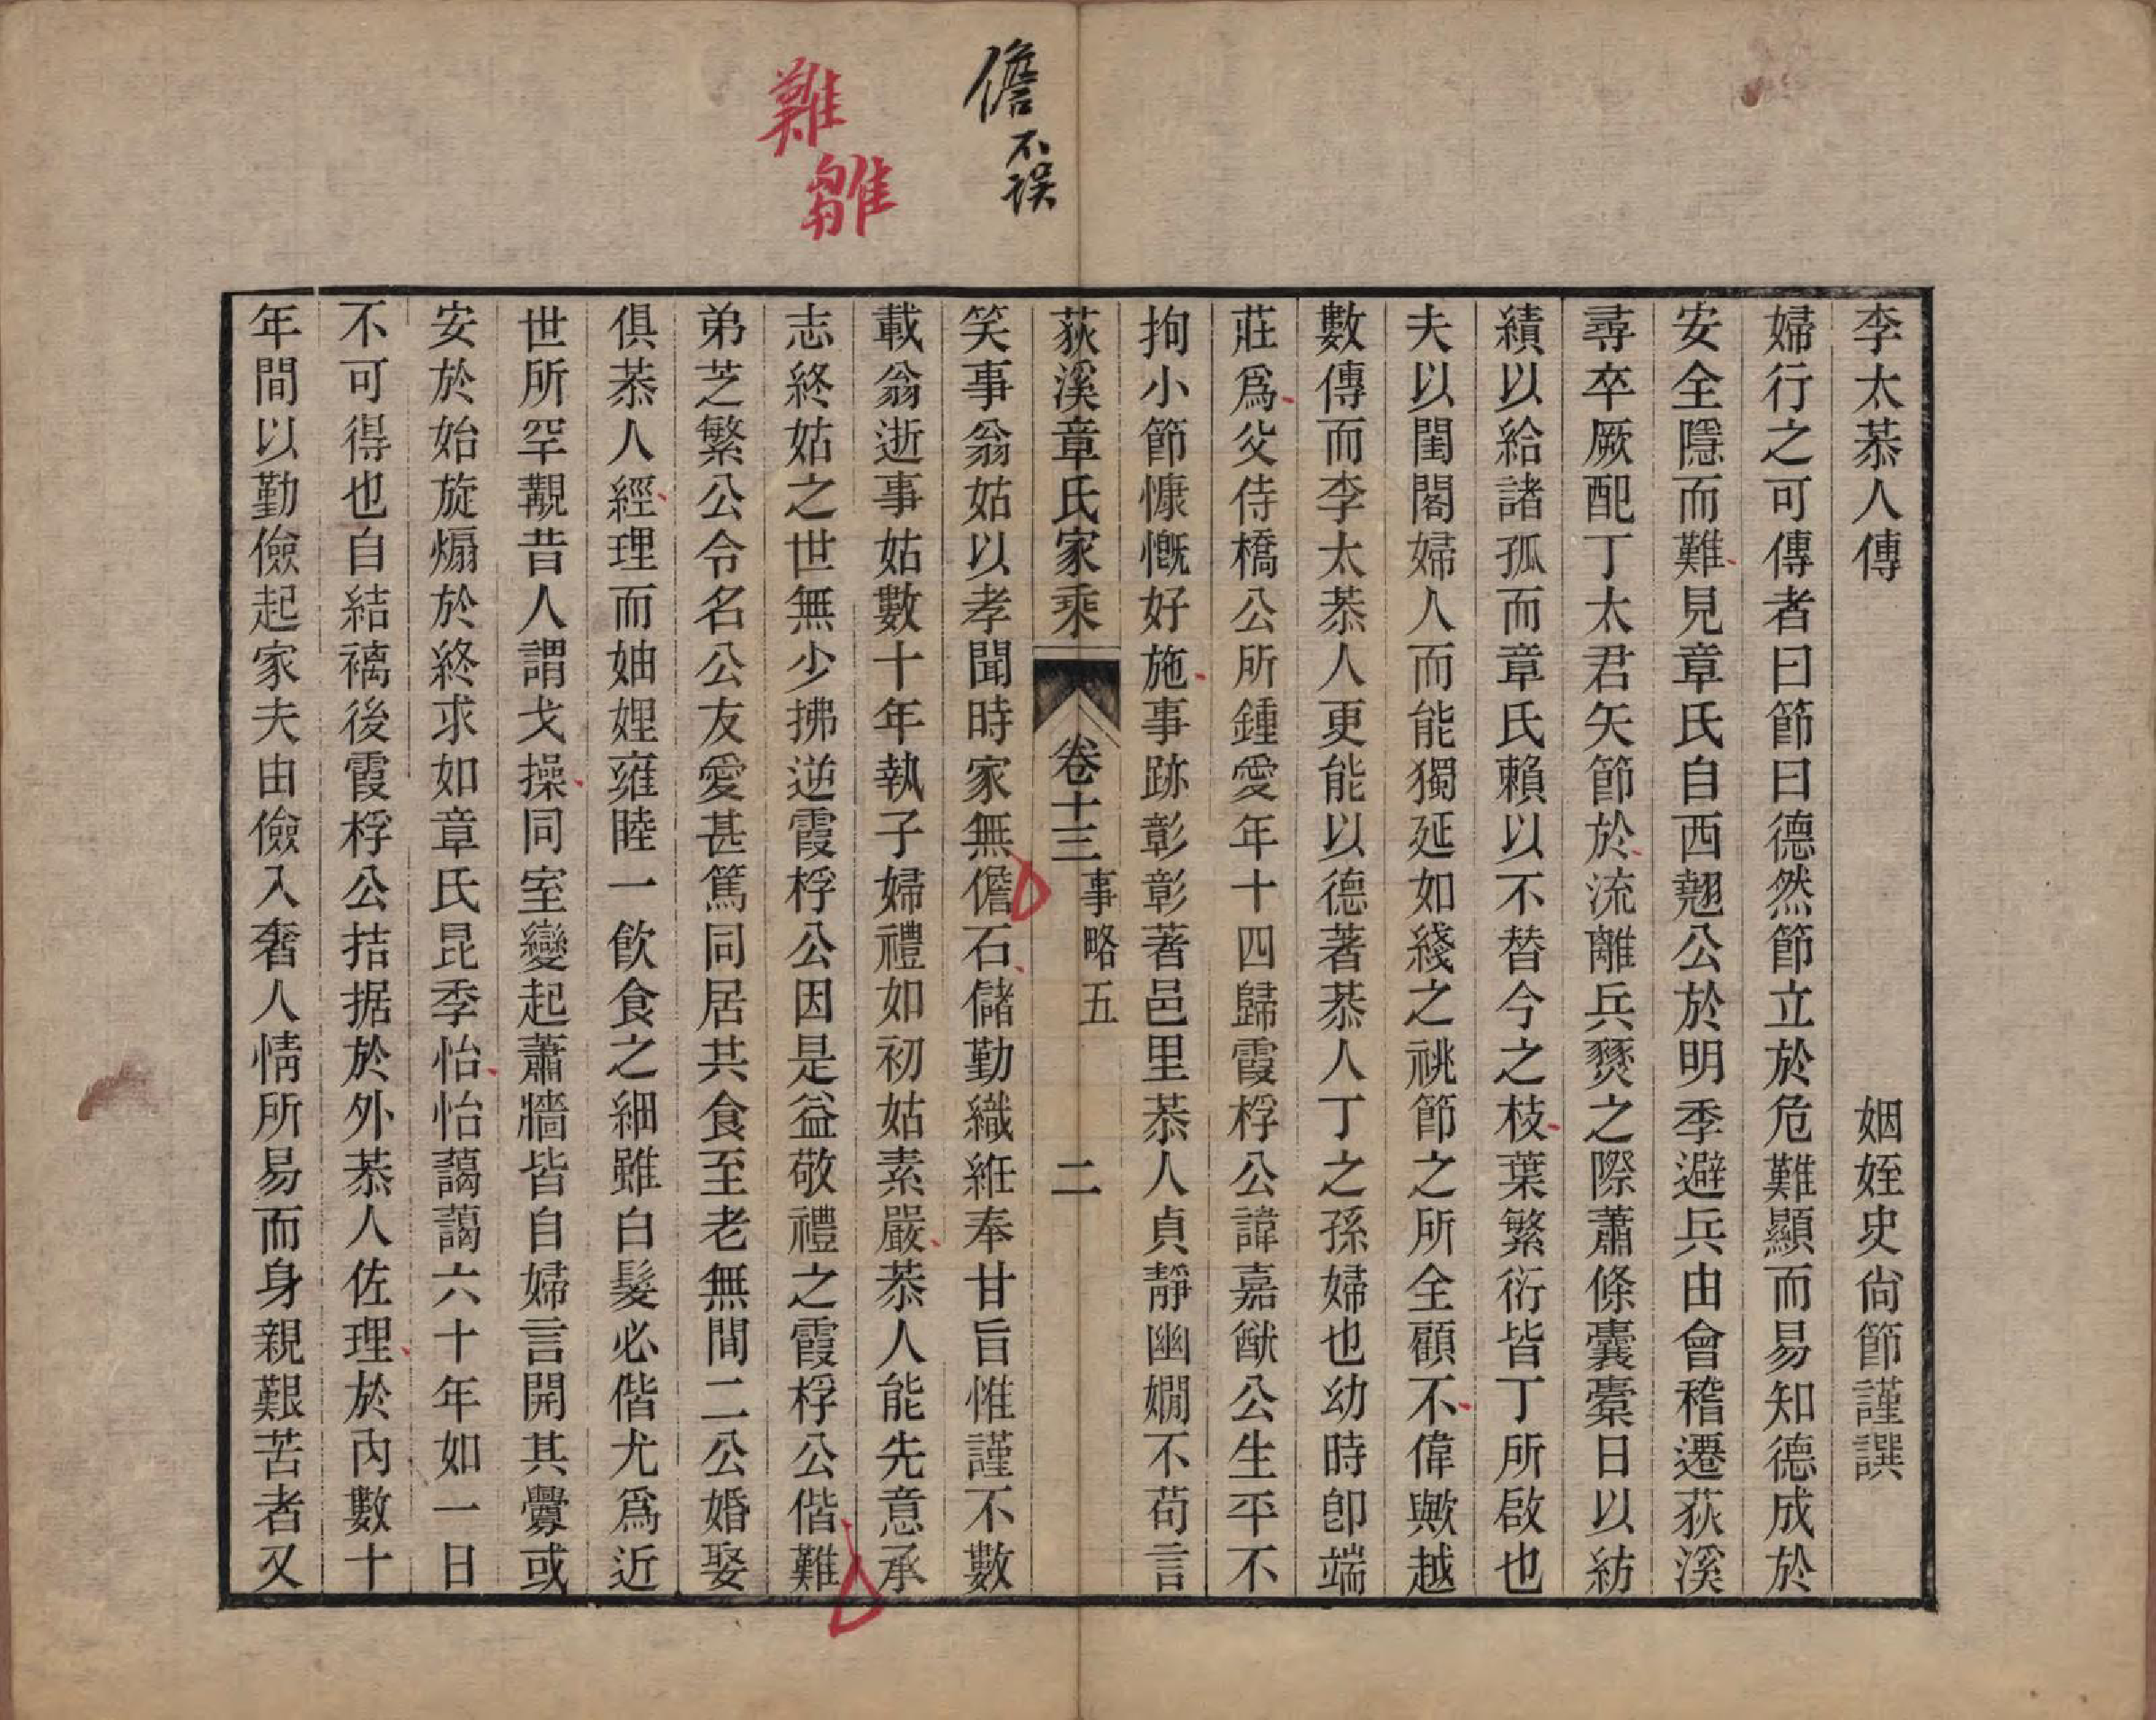 李太恭人傳　姻姪史尙節謹譔
婦行之可傳者曰節曰德然節立於危難顯而易知德成於
安全隱而難見章氏自西翹公於明季避兵由會稽遷荻溪
尋卒厥配丁太君矢節於流離兵燹之際蕭條囊橐日以紡
績以給諸孤而章氏賴以不替今之枝葉繁衍皆丁所啟也
夫以閨閣婦人而能獨延如綫之祧節之所全顧不偉歟越
數傳而李太恭人更能以德著恭人丁之孫婦也幼時卽端
莊爲父侍橋公所鍾愛年十四歸霞桴公諱嘉猷公生平不
拘小節慷慨好施事跡彰彰著邑里恭人貞靜幽嫺不苟言
荻溪章氏家乘　卷十三　事略五　二
笑事翁姑以孝聞時家無儋石儲勤織絍奉甘旨惟謹不數
載翁逝事姑數十年執子婦禮如初姑素嚴恭人能先意承
志終姑之世無少拂逆霞桴公因是益敬禮之霞桴公偕難
弟芝繁公令名公友愛甚篤同居共食至老無間二公婚娶
俱恭人經理而妯娌雍睦一飮食之細雖白髮必偕尤爲近
世所罕覯昔人謂戈操同室變起蕭牆皆自婦言開其釁或
安於始旋煽於終求如章氏昆季怡怡藹藹六十年如一日
不可得也自結褵後霞桴公拮据於外恭人佐理於內數十
年間以勤儉起家夫由儉入奢人情所易而身親艱苦者又
儋不误
難
雛